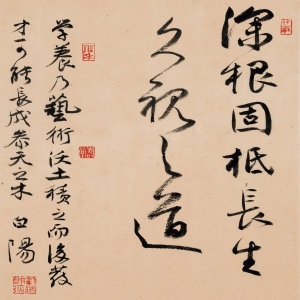 深根固柢長生
久視之道
学養乃藝術沃土積之而後發
才可能長成参天之木 白陽